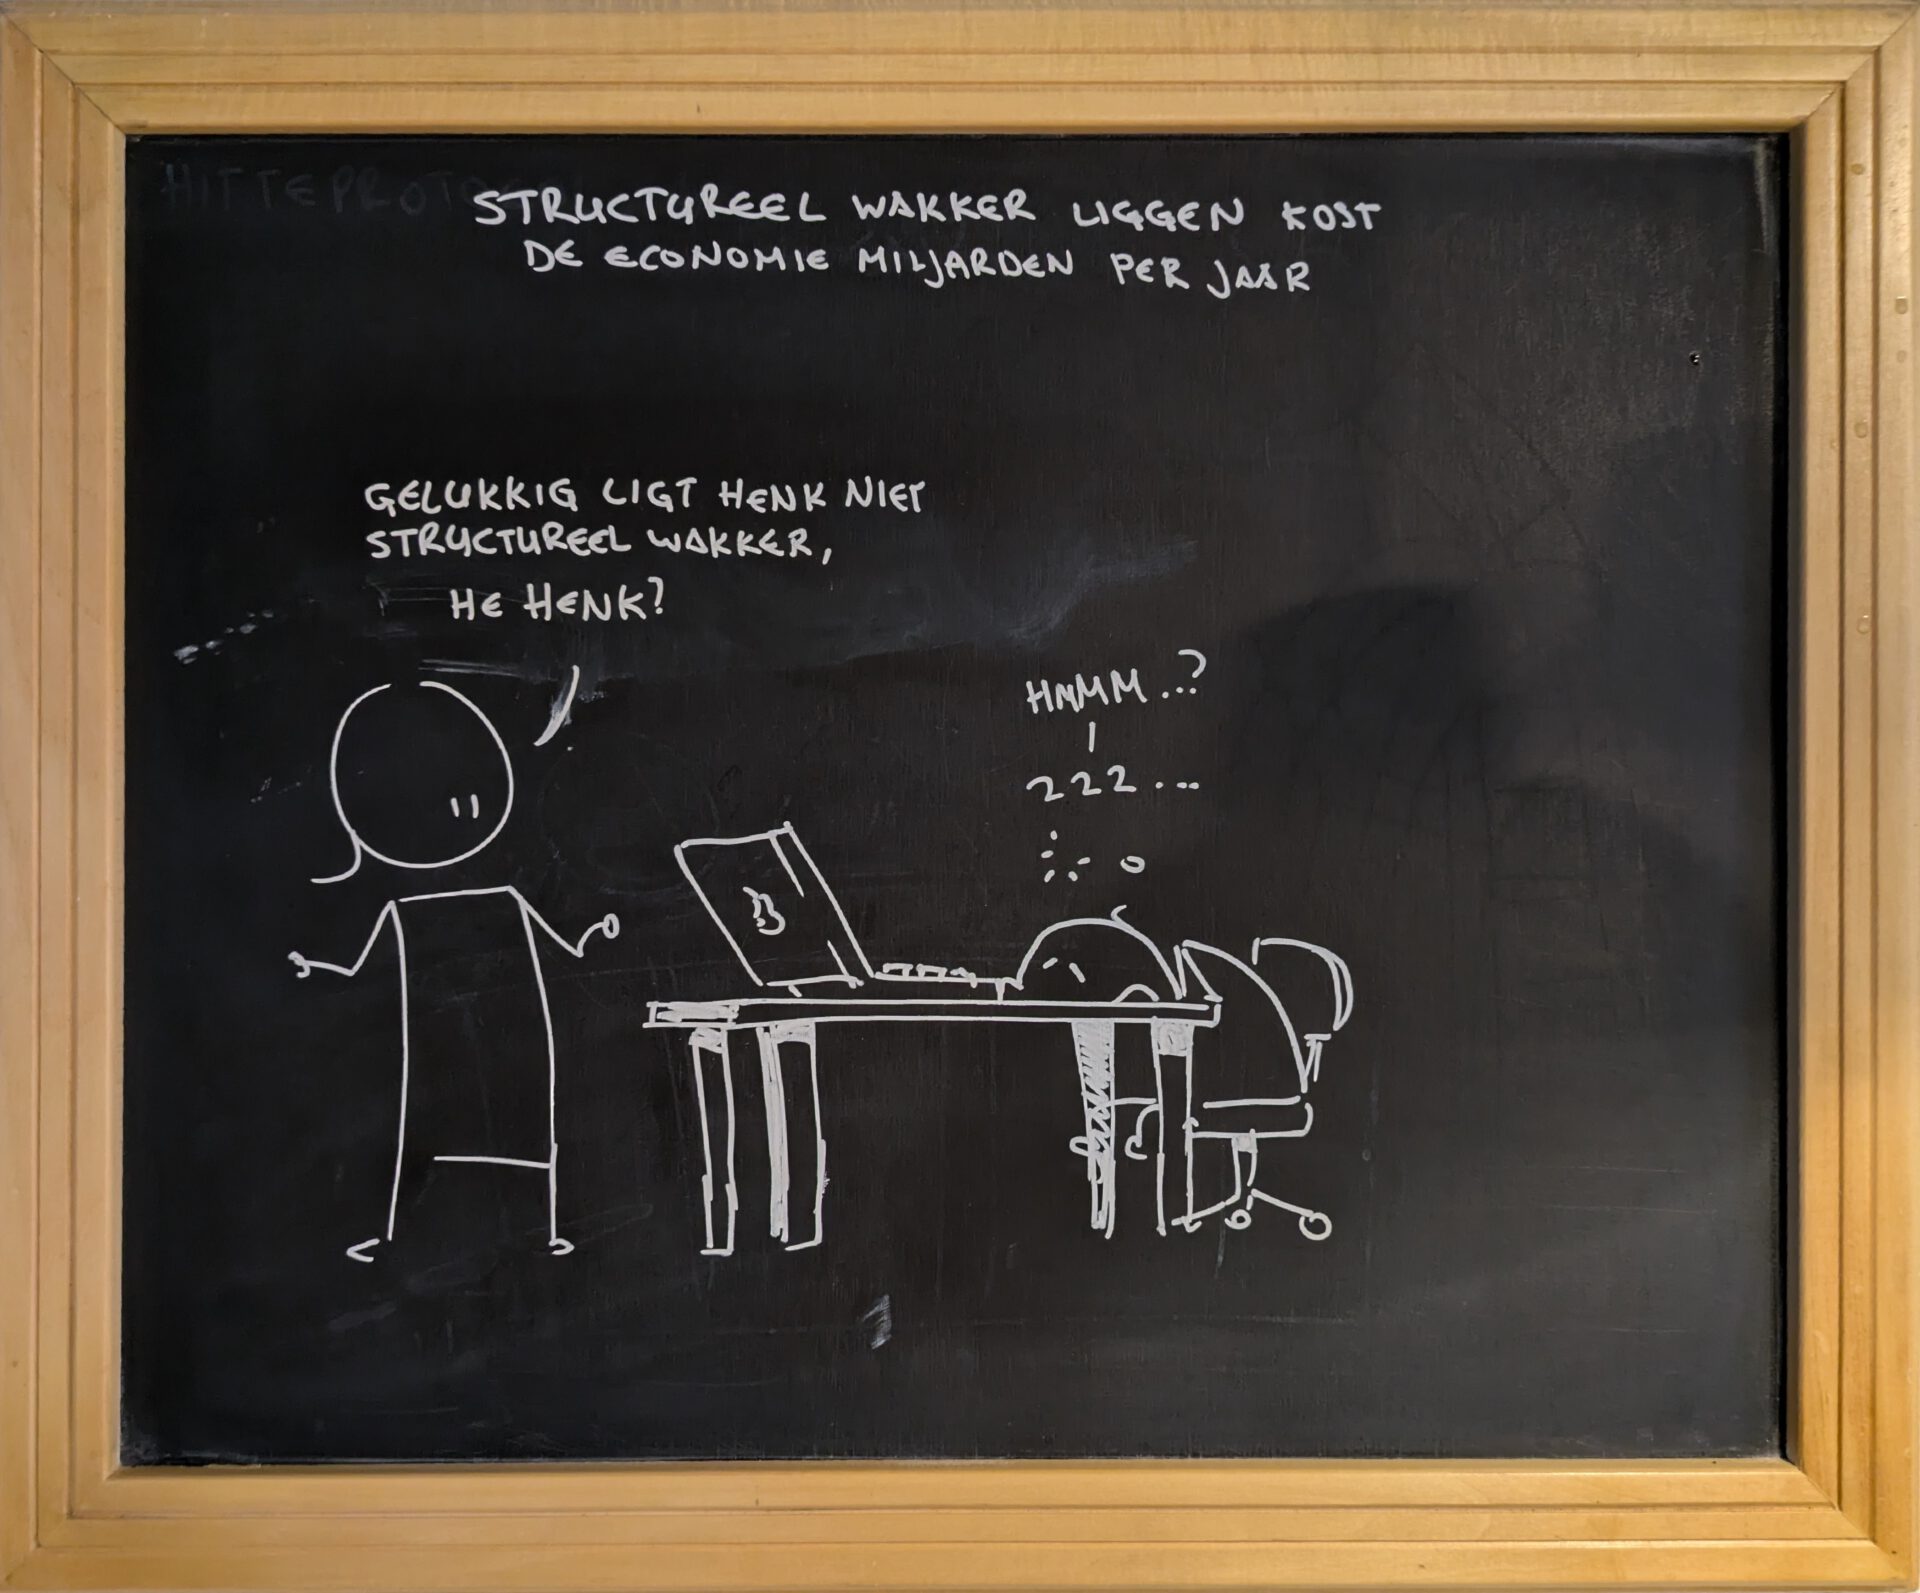 HITTEPROTO
STRUCTUREEL WAKKER LIGGEN KOST
DE ECONOMIE MILJARDEN PER JAAR
GELUKKIG LIGT HENK NIET
STRUCTUREEL WAKKER,
HE HENK?
HMMM...?
ZZZ...